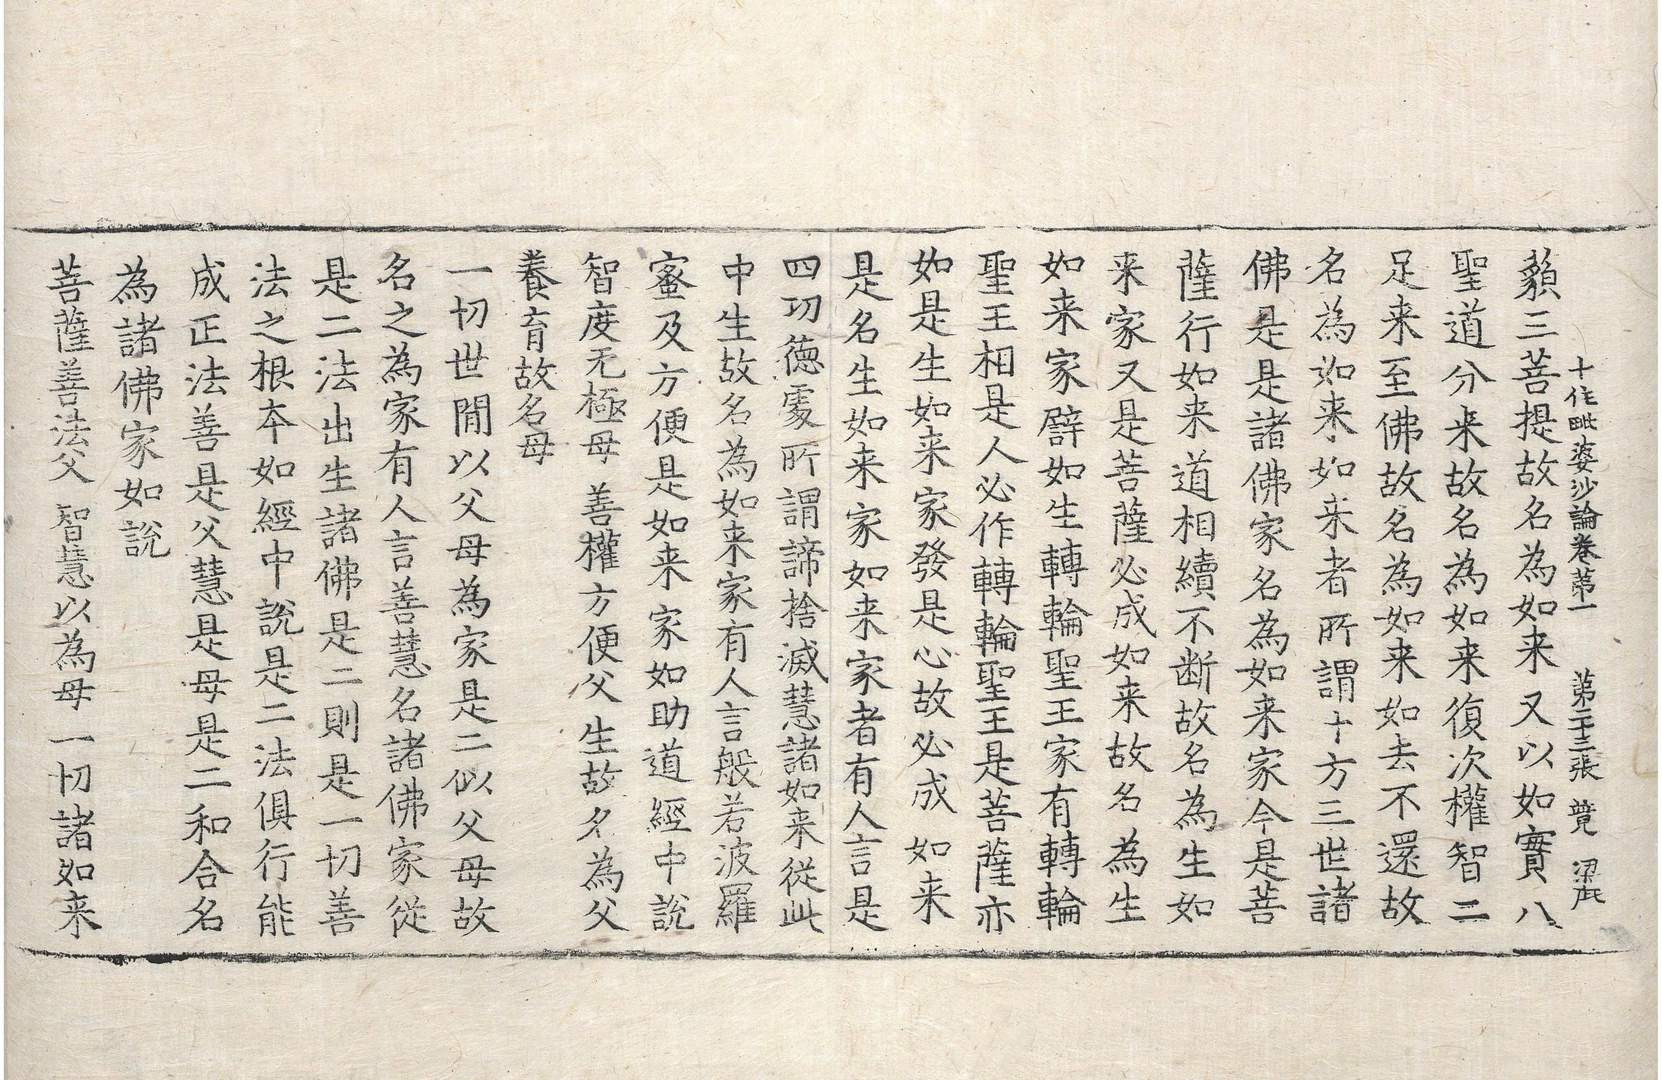 十住毗婆沙論卷第一 第二十三張 競
藐三菩提故名為如来又以如實八
聖道分来故名為如来復次權智二
足来至佛故名為如来如去不還故
名為如来如来者所謂十方三世諸
佛是是諸佛家名為如来家今是菩
薩行如来道相續不断故名為生如
来家又是菩薩必成如来故名為生
如来家譬如生轉輪聖王家有轉輪
聖王相是人必作轉輪聖王是菩薩亦
如是生如来家發是心故必成如来
是名生如来家如来家者有人言是
四功德處所謂諦捨滅慧諸如来從此
中生故名為如来家有人言般若波羅
蜜及方便是如来家如助道經中說
智度无極母 善權方便父 生故名為父
養育故名母
一切世間以父母為家是二似父母故
名之為家有人言善慧名諸佛家從
是二法出生諸佛是二則是一切善
法之根本如經中說是二法俱行能
成正法善是父慧是母是二和合名
為諸佛家如說
菩薩善法父 智慧以為母 一切諸如来